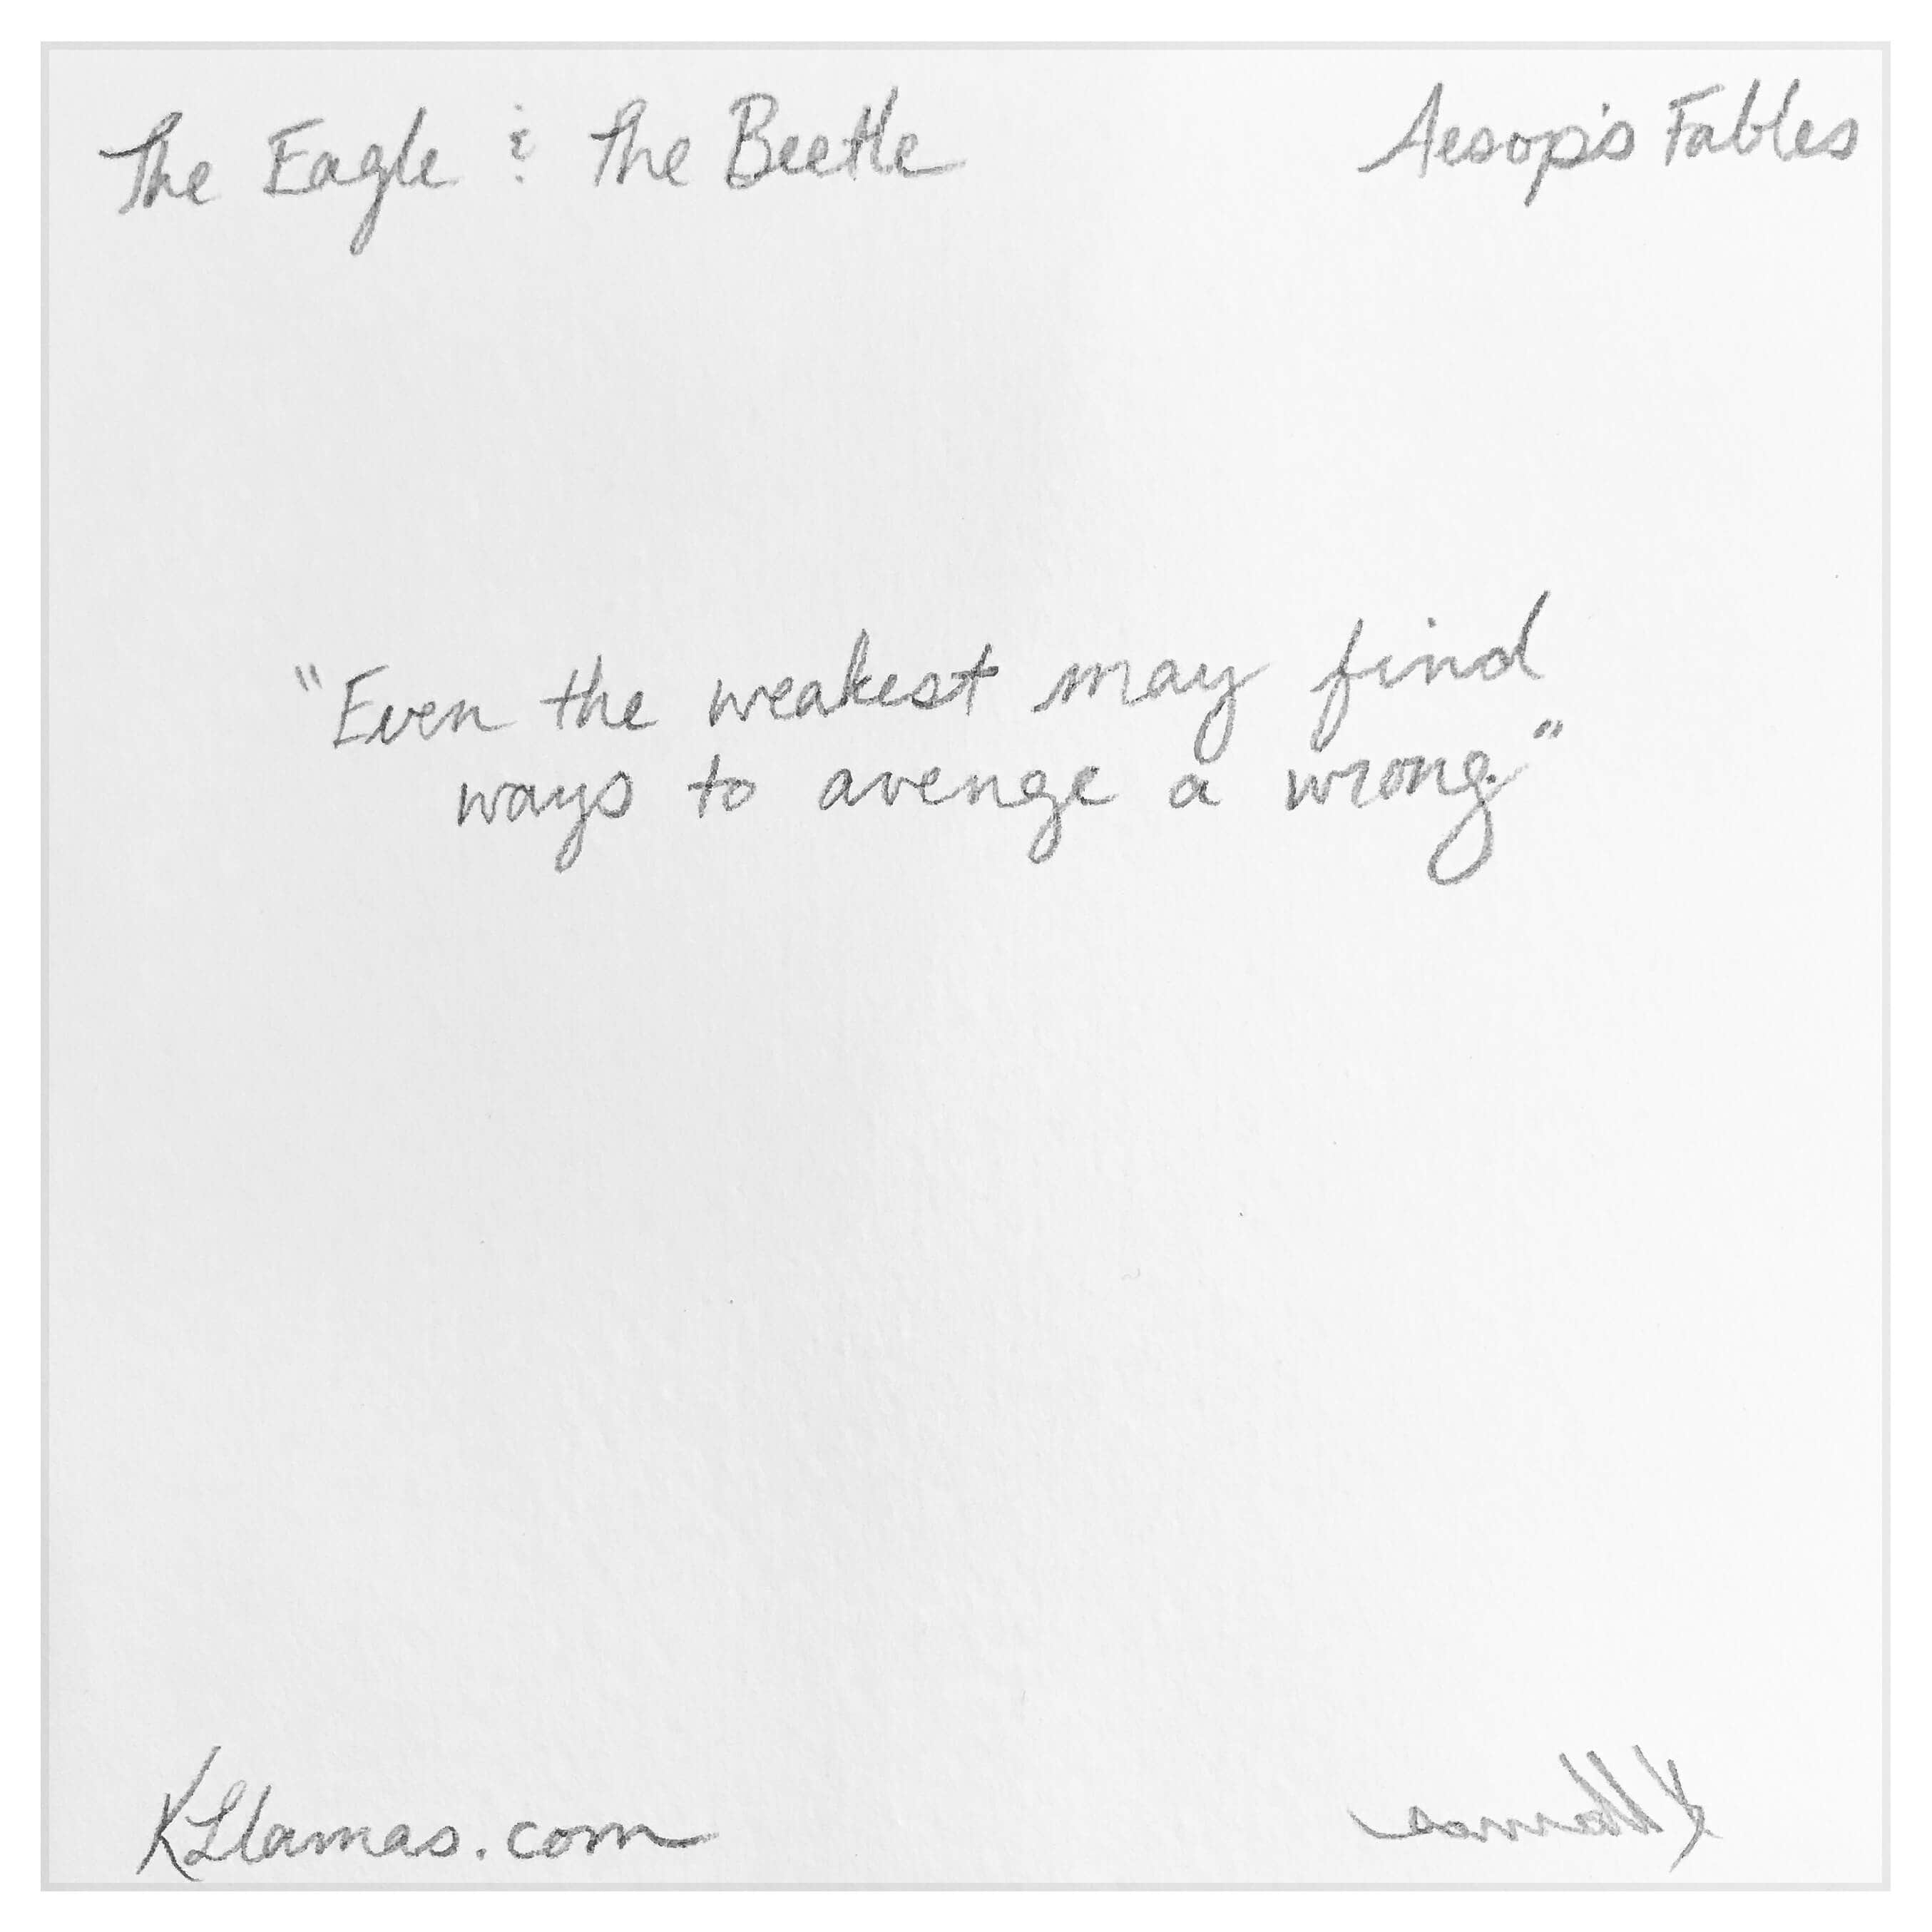 The Eagle & The Beetle
Aesop's Fables
"Even the weakest may find
ways to avenge a wrong."
KLlamas.com
KLlamas